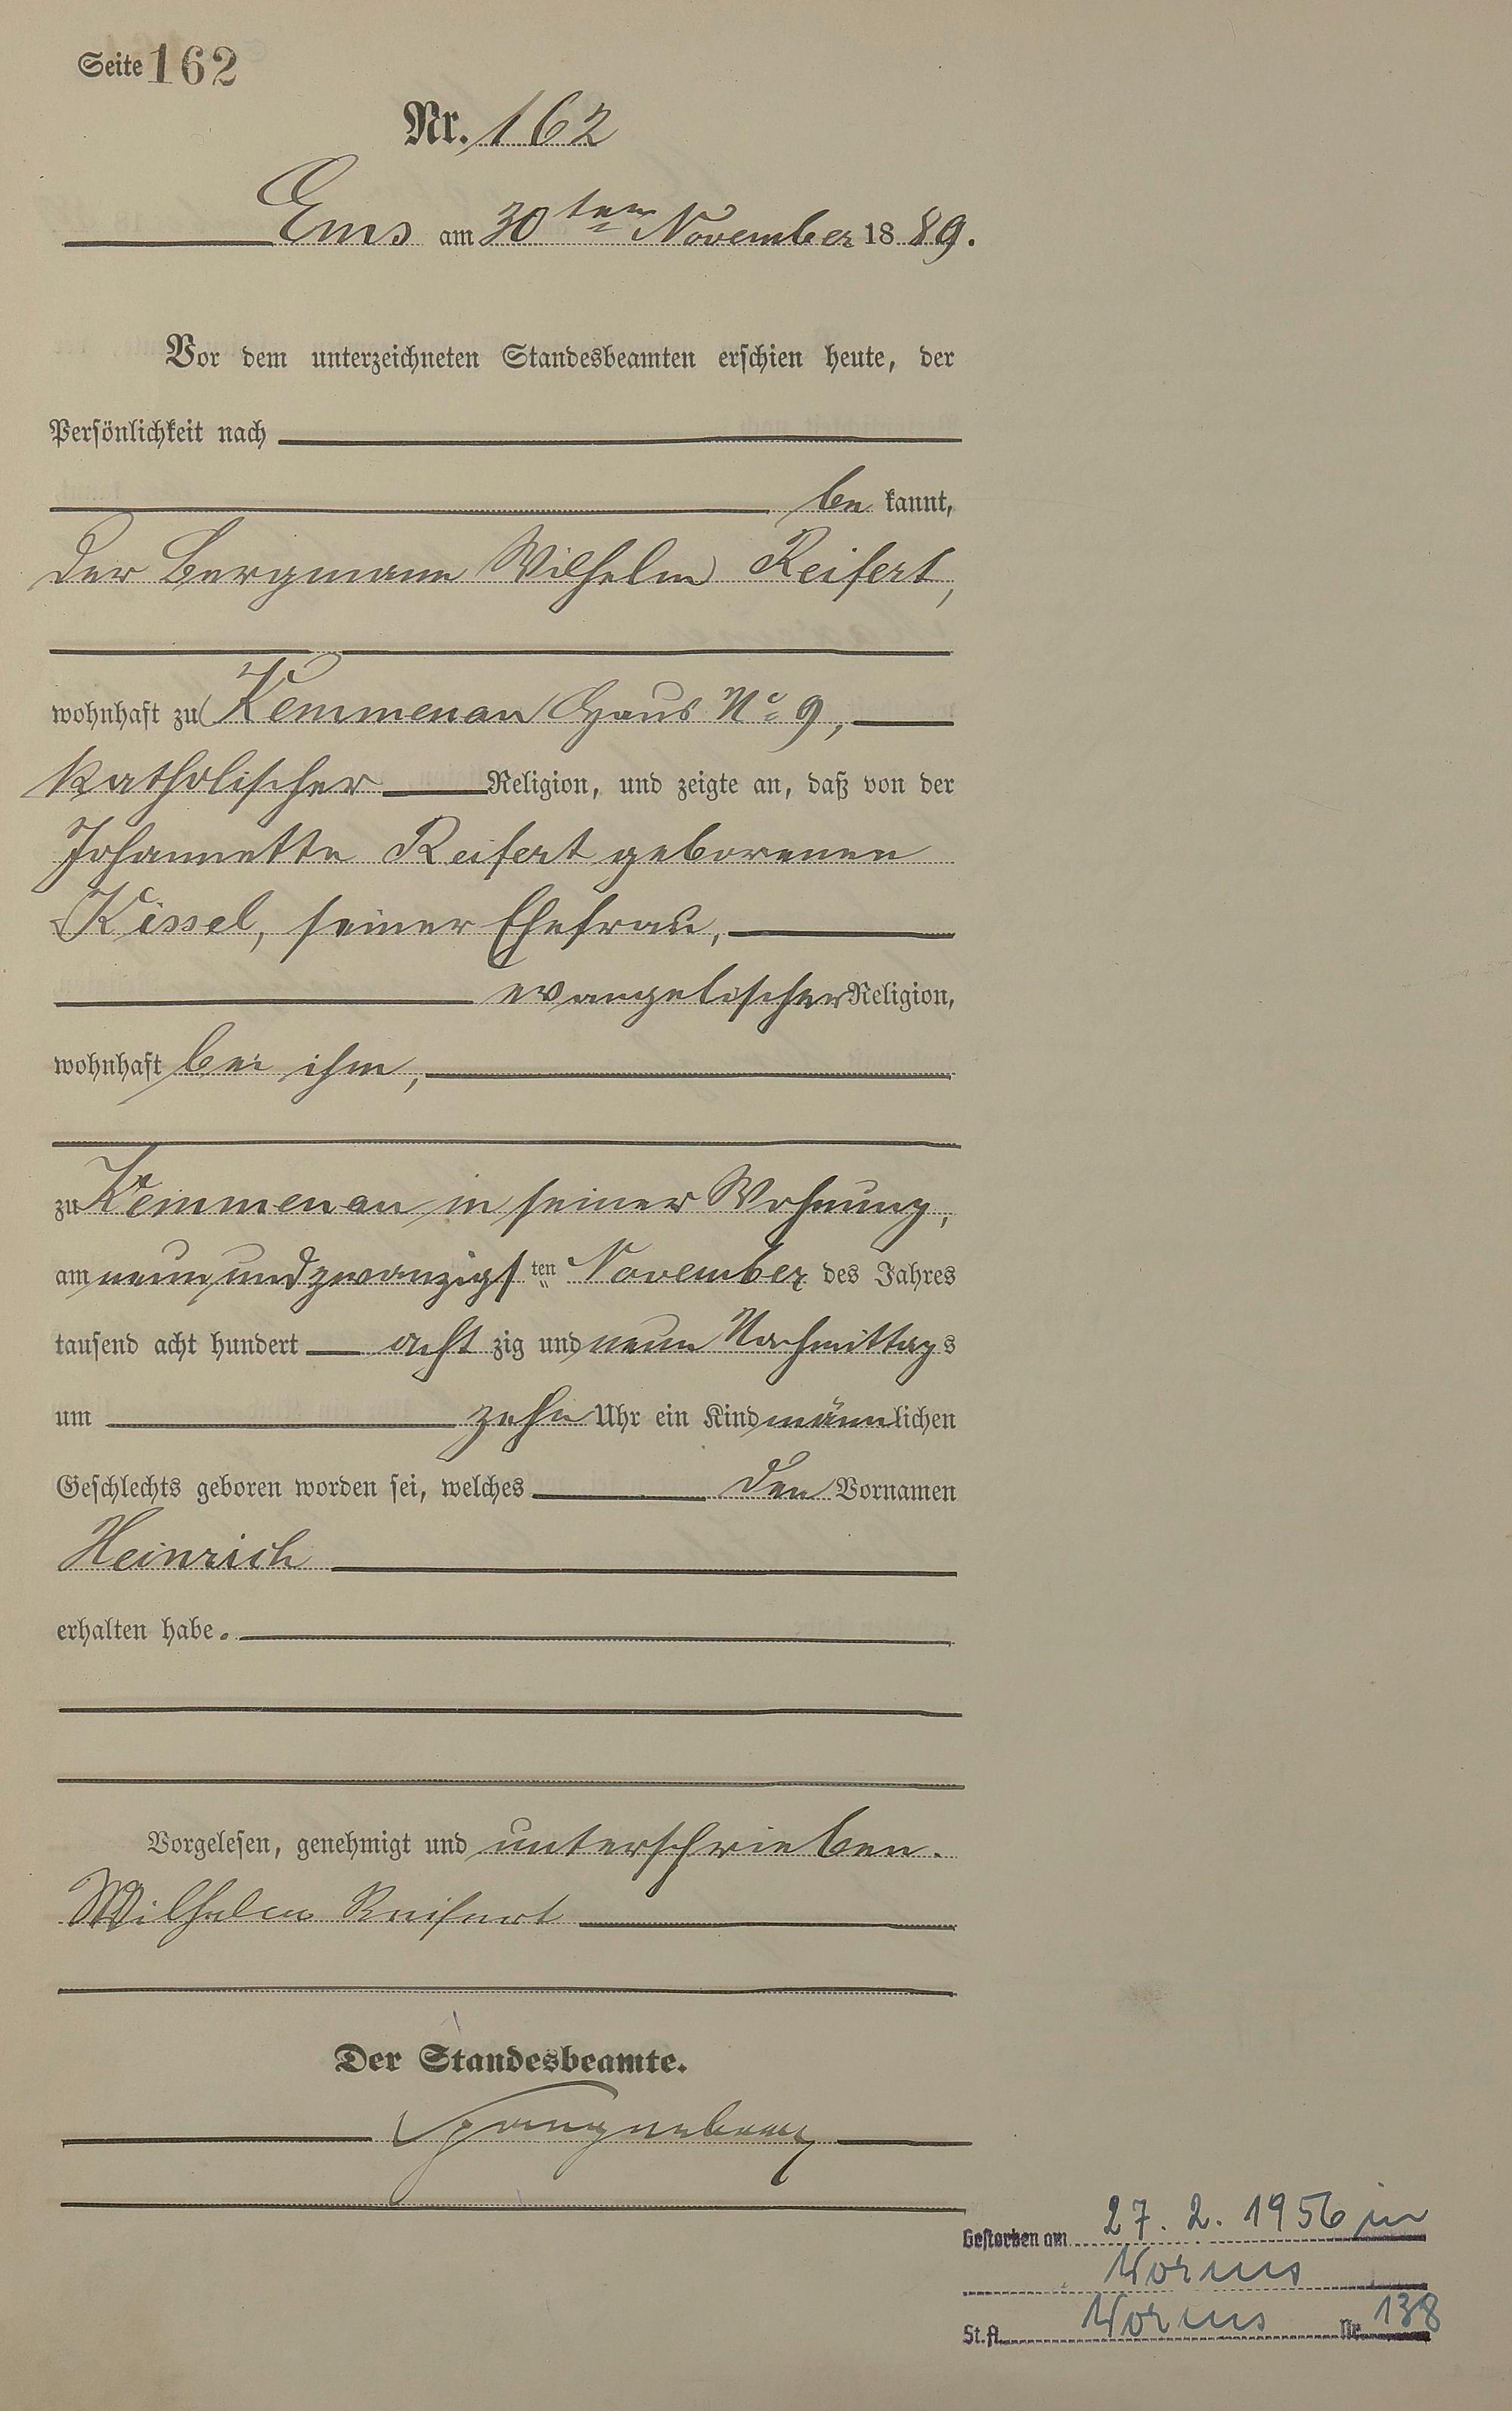 Seite 162
Nr. 162
Ems am 30ten November 1889.
Vor dem unterzeichneten Standesbeamten erschien heute, der
Persönlichkeit nach
be kannt,
der Bergmann Wilhelm Reifert,
wohnhaft zu Kemmenau Haus No 9,
katholischer Religion, und zeigte an, daß von der
Johannette Reifert geborenen
Kissel, seiner Ehefrau,
evangelischer Religion,
wohnhaft bei ihm,
zu Kemmenau in seiner Wohnung,
am neun und zwanzigsten November des Jahres
tausend acht hundert acht zig und neun Nachmittags
um zehn Uhr ein Kind männlichen
Geschlechts geboren worden sei, welches den Vornamen
Heinrich
erhalten habe.
Vorgelesen, genehmigt und unterschrieben.
Wilhelm Reifert
Der Standesbeamte.
Spangenberg
Gestorben am 27. 2. 1956 in
Worms
St. A. Worms Nr. 138